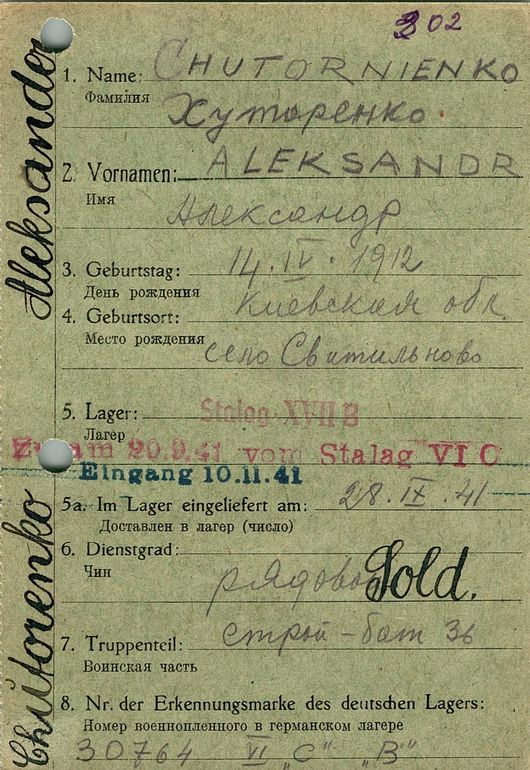 302
1. Name: CHUTORNIENKO
Фамилия Хуторенко
2. Vornamen: ALEKSANDR
Имя Александр
3. Geburtstag: 14. IV. 1912
День рождения
4. Geburtsort: Киевская обл.
Место рождения село Свитильново
5. Lager: Stalag XVII B
Лагер
am 20.9.41 vom Stalag VI C
Eingang 10.11.41
5a. Im Lager eingeliefert am: 28. IX. 41
Доставлен в лагер (число)
6. Dienstgrad:
Чин рядовой Sold.
7. Truppenteil: строй-бат 36
Воинская часть
8. Nr. der Erkennungsmarke des deutschen Lagers:
Номер военнопленного в германском лагере
30764 VI „C" „B"
Chutorenko Aleksander